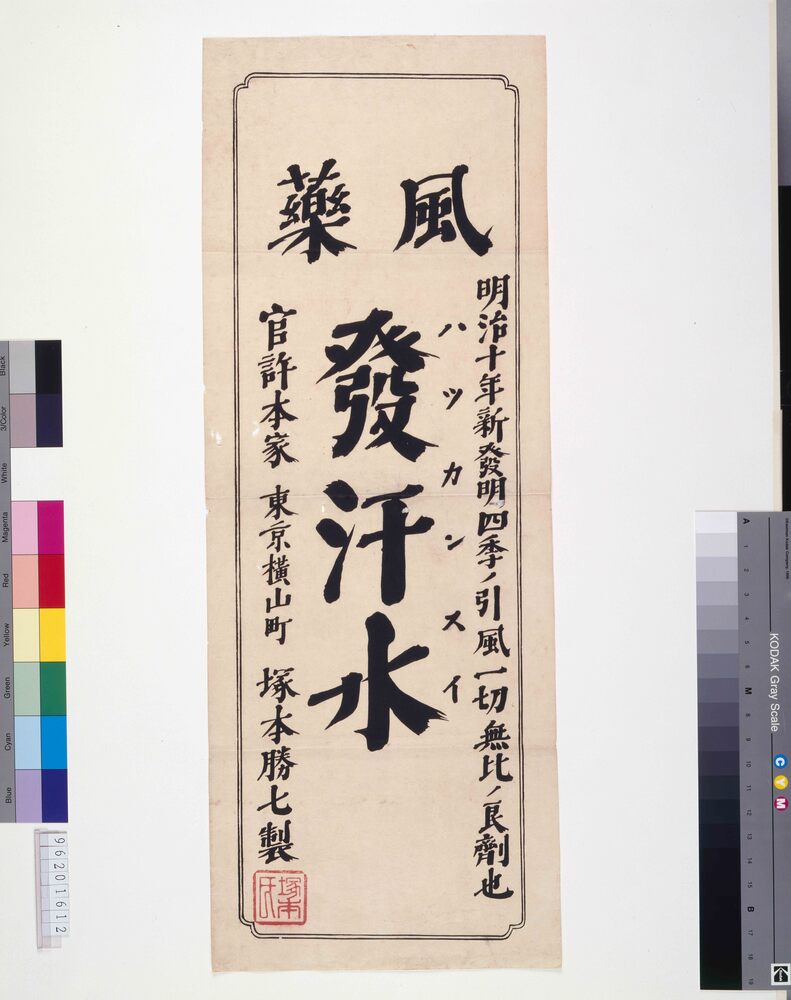 風藥
明治十年新發明四季ノ引風一切無比ノ良劑也
ハツカンスイ
發汗水
官許本家 東京橫山町 塚本勝七製
塚本氏
Black
3/Color
White
Magenta
Red
Yellow
Green
Cyan
Blue
96201612
KODAK Gray Scale
C Y M
A 1 2 3 4 5 6 M 8 9 10 11 12 13 14 15 B 17 18 19
Kodak